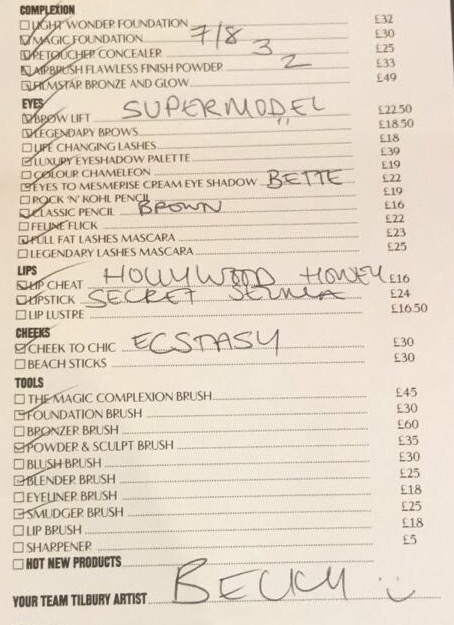 COMPLEXION
LIGHT WONDER FOUNDATION £32
MAGIC FOUNDATION 7/8 £30
RETOUCHER CONCEALER 3 £25
AIRBRUSH FLAWLESS FINISH POWDER 2 £33
FILMSTAR BRONZE AND GLOW £49
EYES
BROW LIFT SUPERMODEL £22.50
LEGENDARY BROWS " £18.50
LIFE CHANGING LASHES £18
LUXURY EYESHADOW PALETTE £39
COLOUR CHAMELEON £19
EYES TO MESMERISE CREAM EYE SHADOW BETTE £22
ROCK 'N' KOHL PENCIL £19
CLASSIC PENCIL BROWN £16
FELINE FLICK £22
FULL FAT LASHES MASCARA £23
LEGENDARY LASHES MASCARA £25
LIPS
LIP CHEAT HOLLYWOOD HONEY £16
LIPSTICK SECRET £24
LIP LUSTRE £16.50
CHEEKS
CHEEK TO CHIC ECSTASY £30
BEACH STICKS £30
TOOLS
THE MAGIC COMPLEXION BRUSH £45
FOUNDATION BRUSH £30
BRONZER BRUSH £60
POWDER & SCULPT BRUSH £35
BLUSH BRUSH £30
BLENDER BRUSH £25
EYELINER BRUSH £18
SMUDGER BRUSH £25
LIP BRUSH £18
SHARPENER £5
HOT NEW PRODUCTS
YOUR TEAM TILBURY ARTIST BECKY